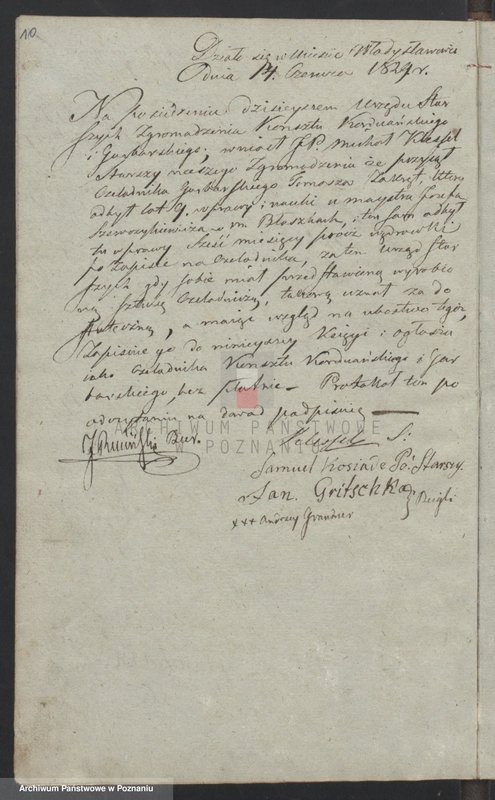 110.
Działo się w Mieście Władysławowie
dnia 14. Czerwca 1824 r.
Na posiedzeniu dzisieyszem Urzędu Star
szych Zgromadzenia Kunsztu Korduańskiego
i Garbarskiego, wniosł J.P. Michał Klessel
Starszy naszego Zgromadzenia że przyiął
Czeladnika Garbarskiego Tomasza który
odbył lat 9. wprawy i nauki u maystra Józefa
w m. Błaszkach, i ten sam odbył
tu wprawy sześć miesięcy prócz wędrówki
po zapisie na Czeladnika, zatem Urząd Star
szych gdy sobie miał przedstawioną wyrobio
ną sztukę Czeladniczą, takową uznał za do
kuteczną, a maiąc wzgląd na ubóstwo tegoż
Zapisuie go do ninieyszey Księgi i ogłasza
iako Czeladnika Kunsztu Korduańskiego i Gar
barskiego bez płatnie – Protokół ten po
odczytaniu na dowód podpisuią
Bur. Klessel S:
Samuel Kosiade Po: Starszy
Jan. Gritschka
+++ Andrzey
ARCHIWUM PAŃSTWOWE
W POZNANIU
Archiwum Państwowe w Poznaniu